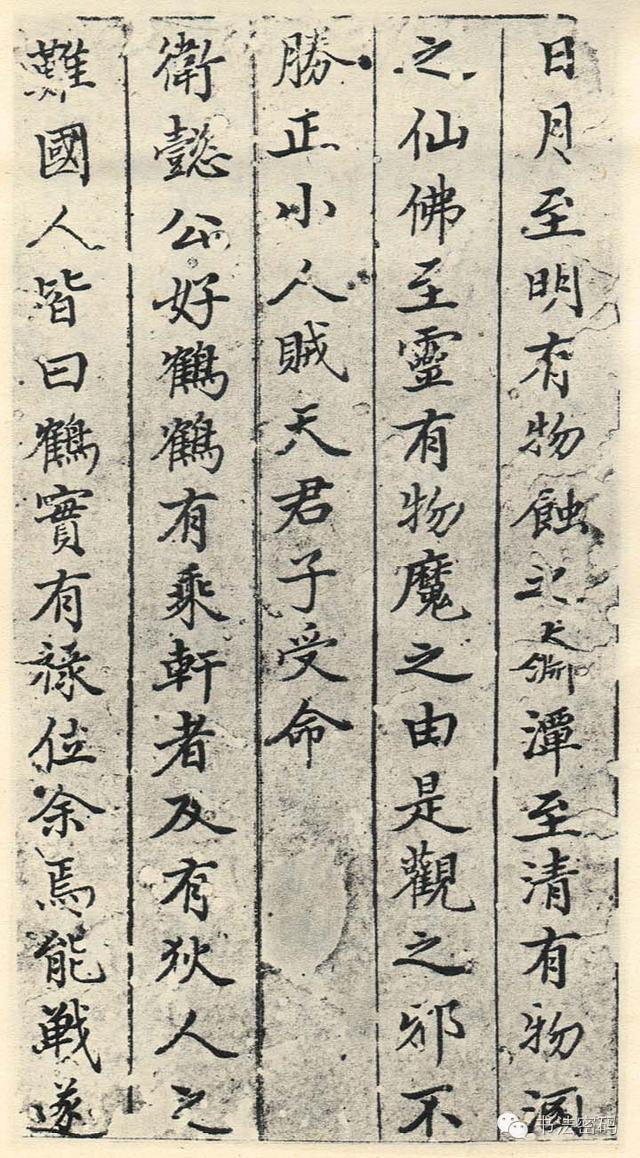 日月至明有物蝕之潭至清有物溷
之仙佛至靈有物魔之由是觀之邪不
勝正小人賊天君子受命
衛懿公好鶴鶴有乘軒者及有狄人之
難國人皆曰鶴實有祿位余焉能戰遂
书法密码